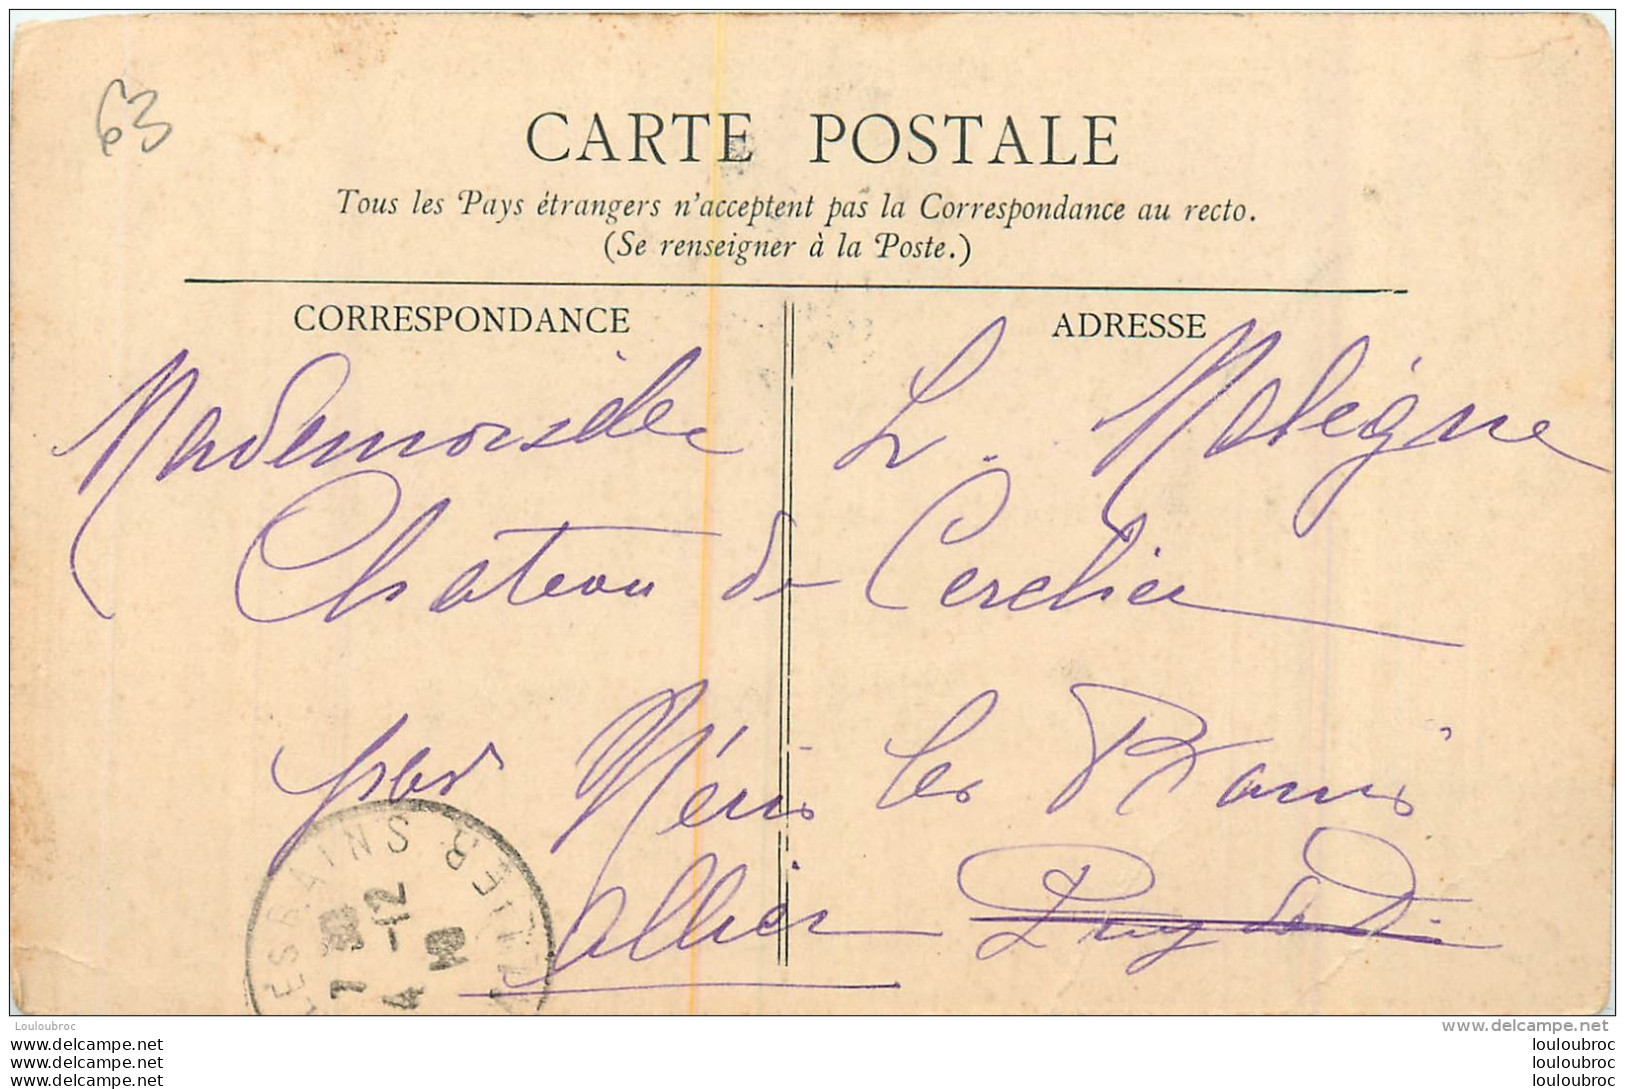 63
CARTE POSTALE
Tous les Pays étrangers n'acceptent pas la Correspondance au recto.
(Se renseigner à la Poste.)
CORRESPONDANCE
ADRESSE
Mademoiselle L. Malégue
Château de Cerclier
par Néris les Bains
Allier Puy de D
7 30
4 -12
10
Louloubroc
www.delcampe.net
www.delcampe.net
www.delcampe.net
www.delcampe.net
louloubroc
louloubroc
louloubroc